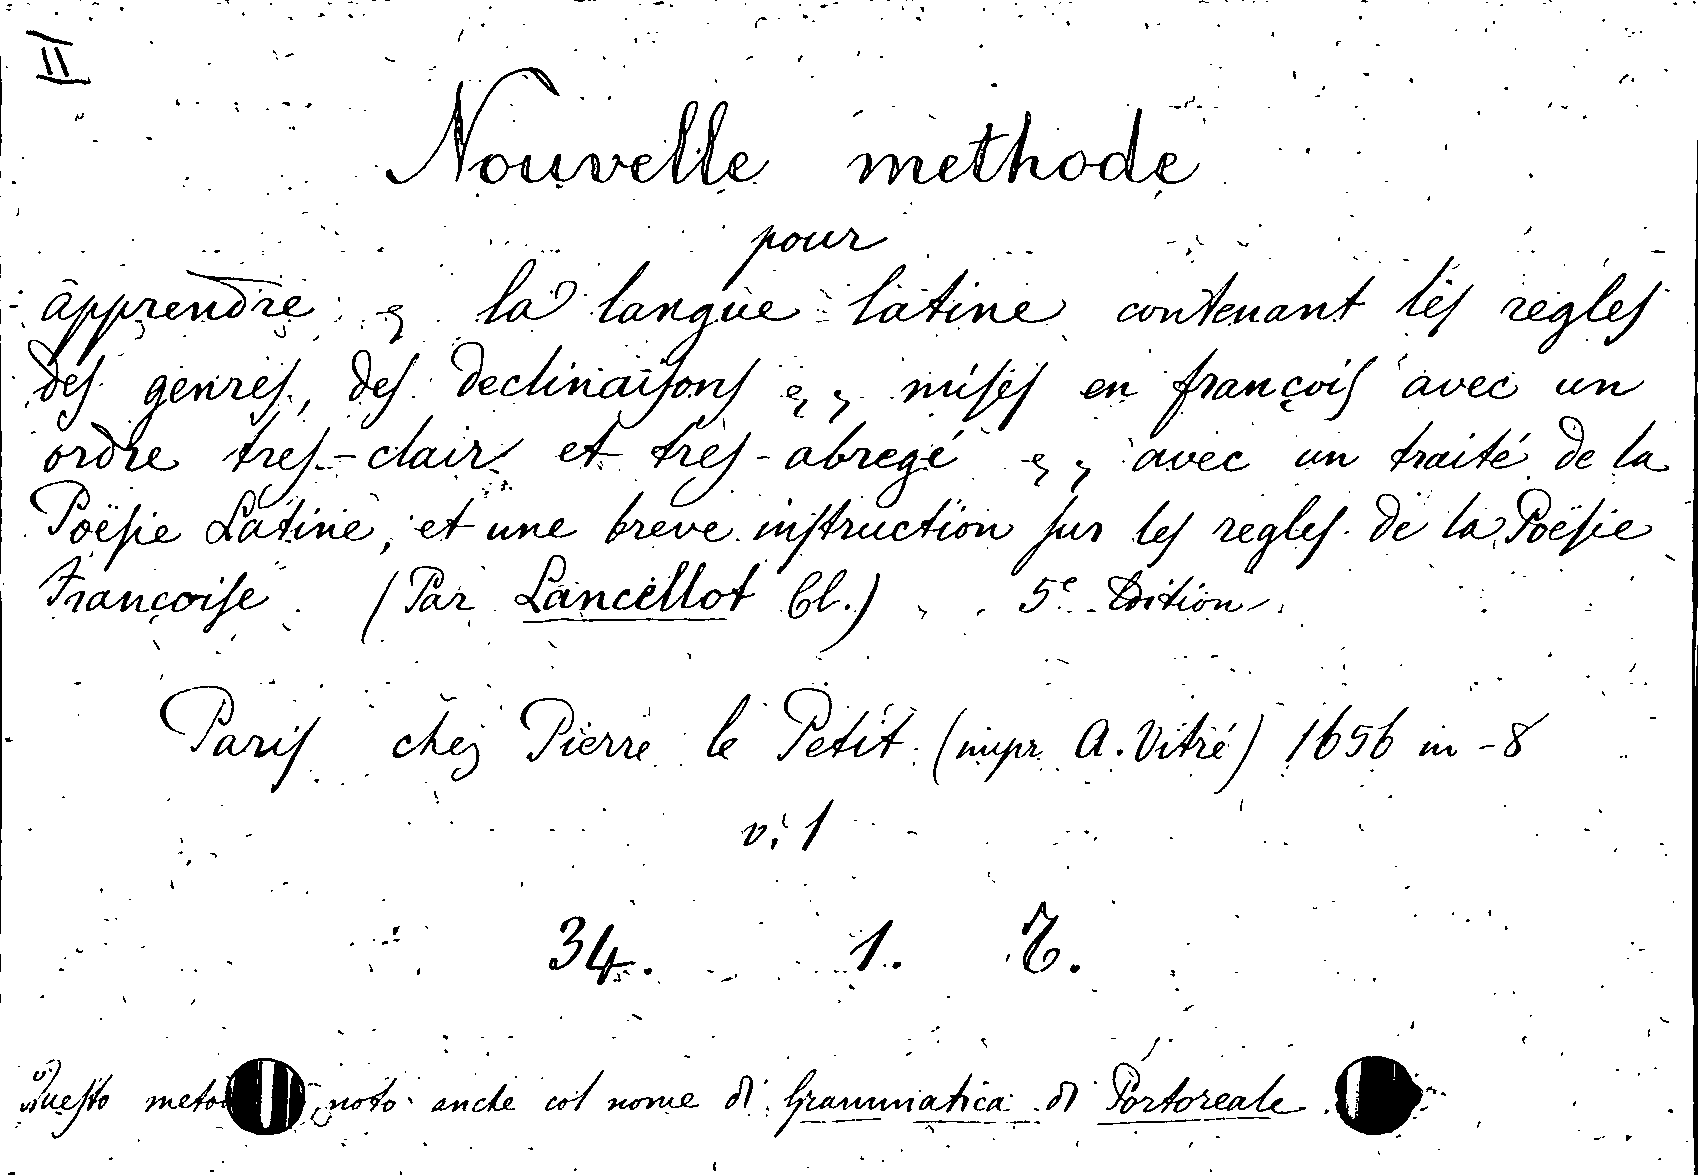 II
Nouvelle methode
pour
apprendre la langue latine contenant les regles
des genres, des declinaisons mises en françois avec un
ordre tres-clair et tres-abregé avec un traité de la
Poësie Latine, et une breve instruction sur les regles de la Poësie
Françoise (Par Lancellot Cl.) 5e Edition
Paris chez Pierre le Petit (impr. A. Vitré) 1656 in-8
v. 1
34. 1. 7.
Questo noto anche col nome di Grammatica di Portoreale